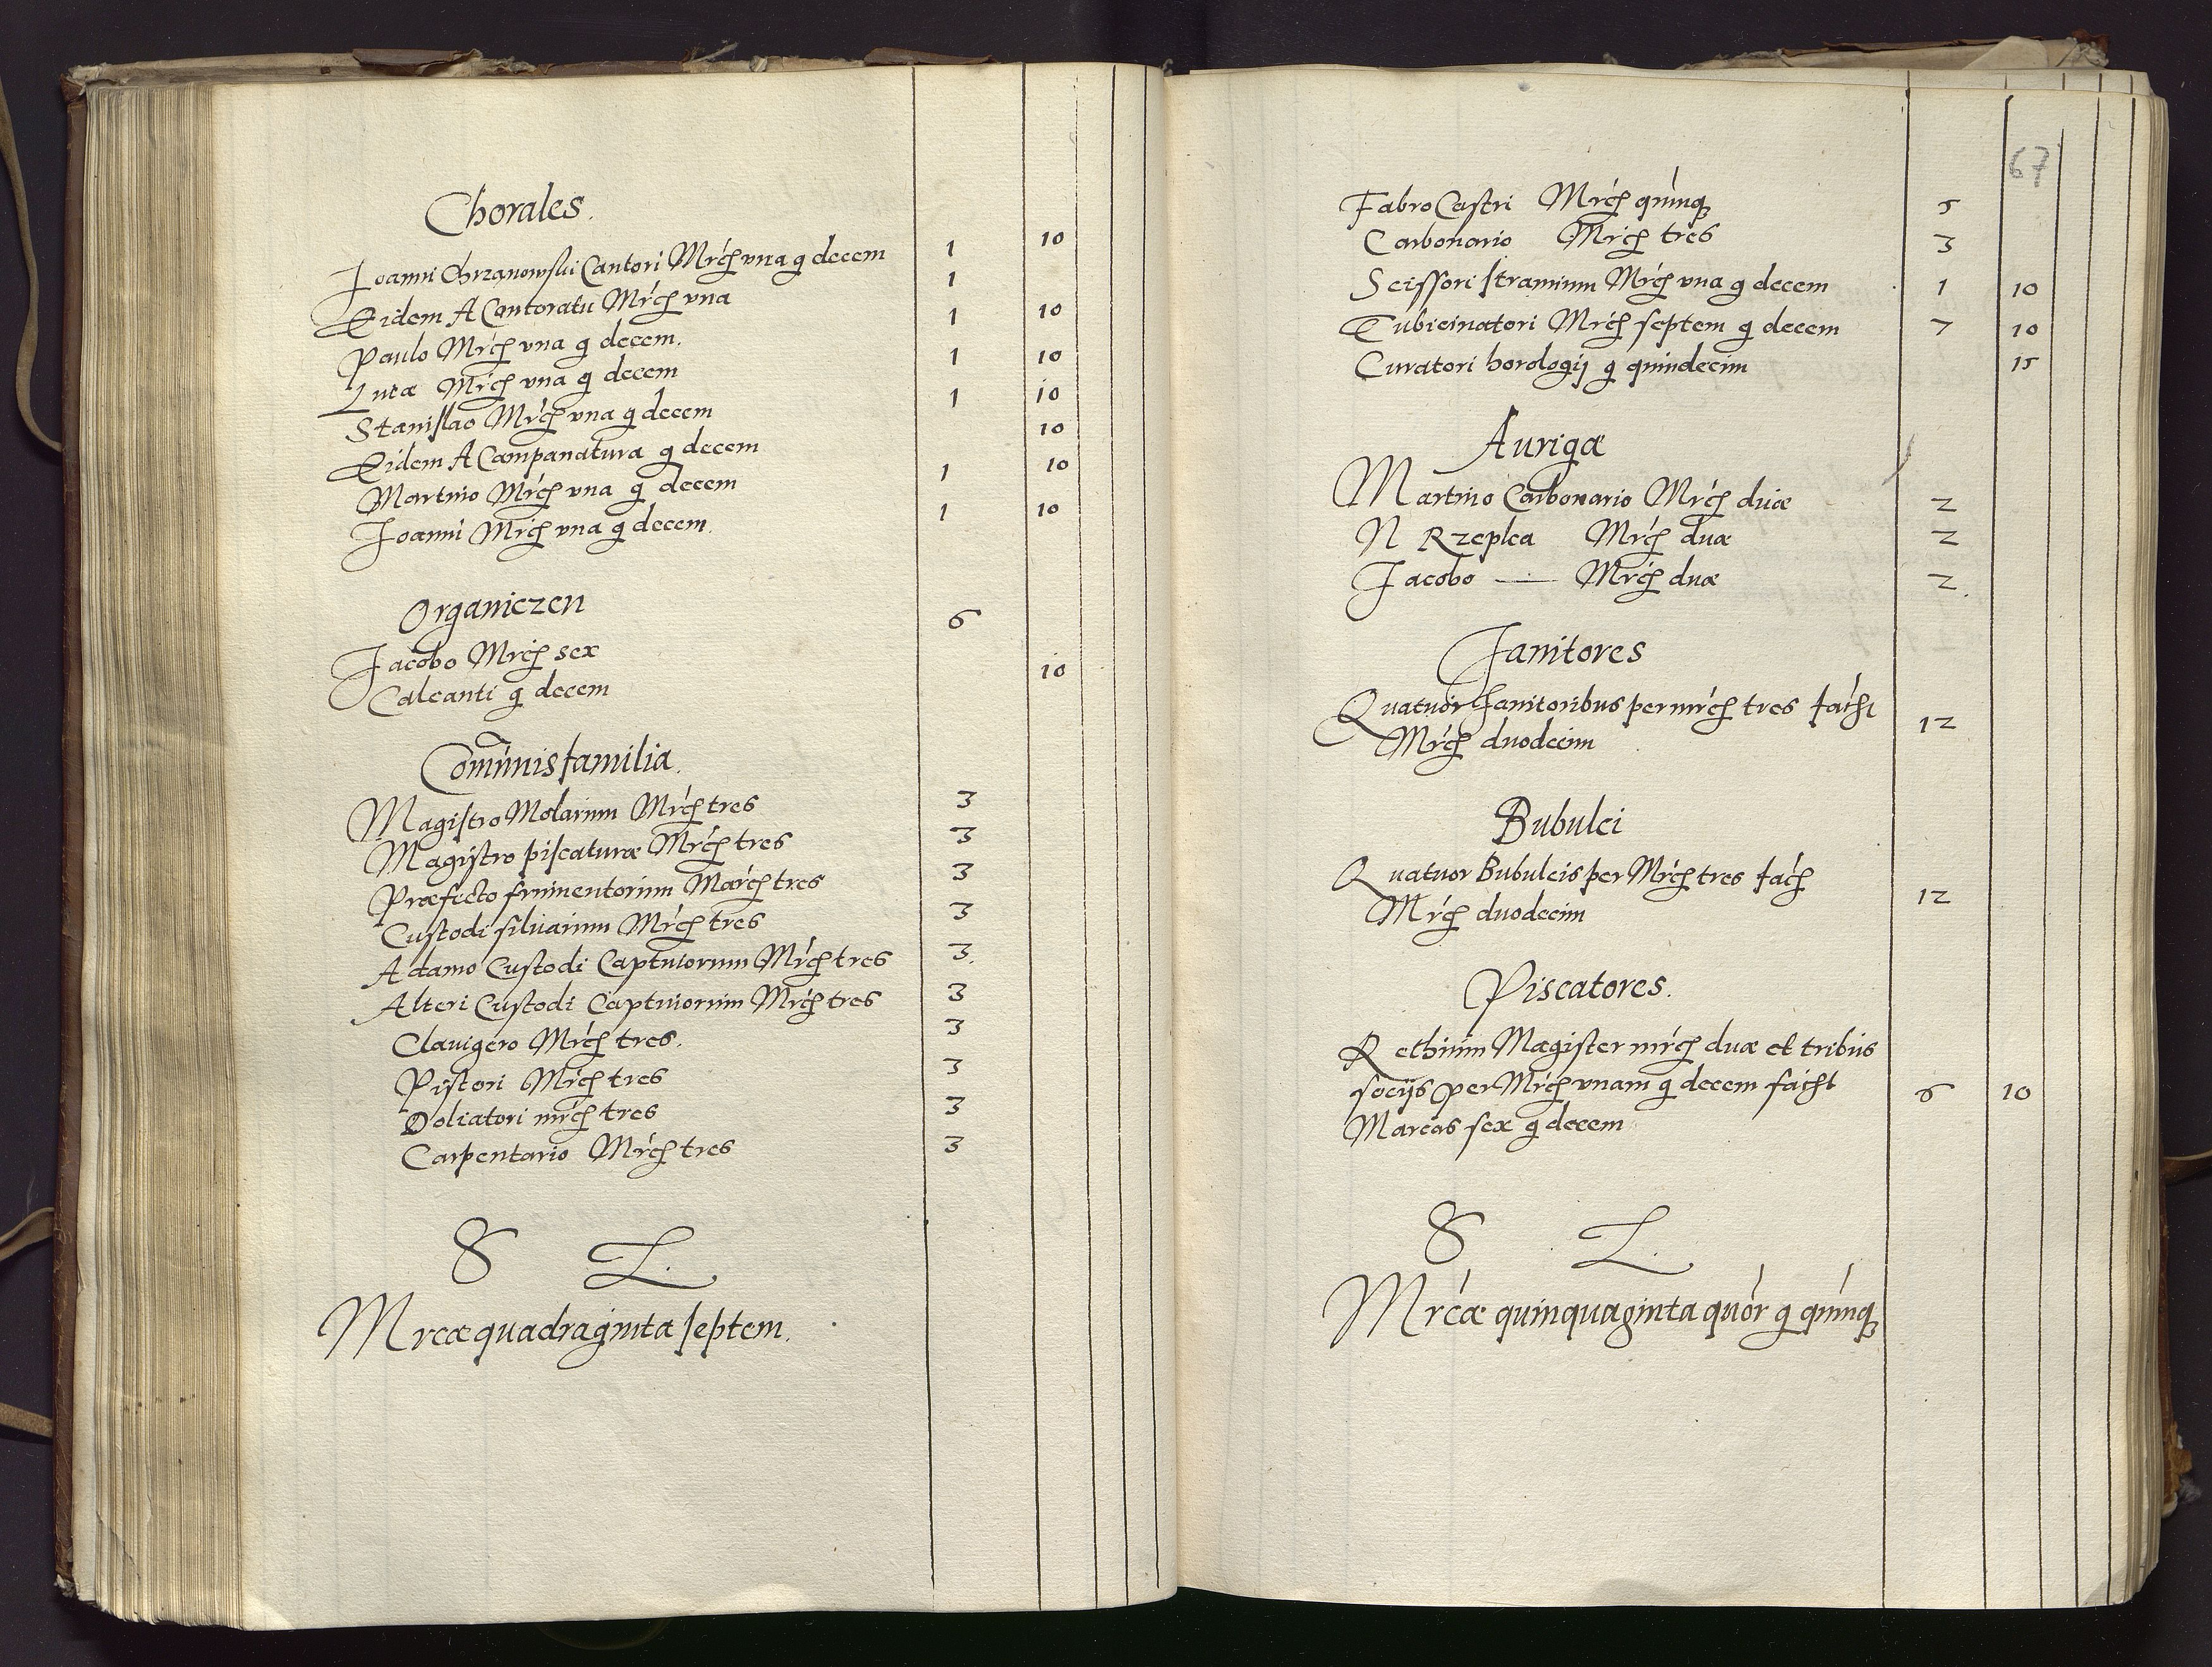 Chorales.
Joanni Chrzanowski Cantori Mrcę vna g decem 1 10
Eidem A Cantoratu Mrcę vna 1
Paulo Mrcę vna g decem. 1 10
Lucæ Mrcę vna g decem 1 10
Stanislao Mrcę vna g decem 1 10
Eidem A Campanatura g decem 10
Martino Mrcę vna g decem 1 10
Joanni Mrcę vna g decem. 1 10
Organiczen
Jacobo Mrcę sex 6
Calcanti g decem 10
Com̃unis familia.
Magistro Molarum Mrcę tres 3
Magistro piscaturæ Mrcę tres 3
Præfecto frumentorum Marcę tres 3
Custodi siluarum Mrcę tres 3
Adamo Custodi Captiuorum Mrcę tres 3.
Alteri Custodi Captiuorum Mrcę tres 3
Clauigero Mrcę tres. 3
Pistori Mrcę tres 3
Doliatori mrcę tres 3
Carpentario Mrcę tres 3
S L.
Mrcæ quadraginta septem.
67
Fabro Castri Mrcę quinq 5
Carbonario Mrcę tres 3
Scissori straminum Mrcę vna g decem 1 10
Tubicinatori Mrcę septem g decem 7 10
Curatori horologij g quindecim 15
Aurigæ
Martino Carbonario Mrcę duæ 2
N Rzepka Mrcę duæ 2
Jacobo — Mrcę duæ 2.
Janitores
Quatuor Janitoribus per mrcę tres facht
Mrcę duodecim 12
Bubulci
Quatuor Bubulcis per Mrcę tres fach
Mrcę duodecim 12
Piscatores.
Rethium Magister mrcę duæ et tribus
socijs per Mrcę vnam g decem facht 6 10
Marcas sex g decem
S L.
Mrcæ quinquaginta quor g quinq